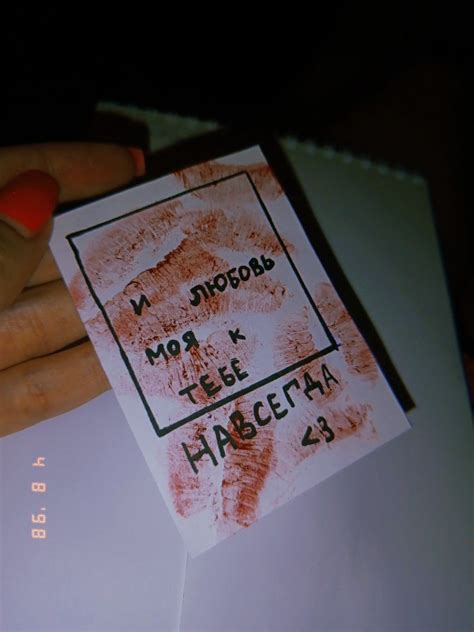 И ЛЮБОВЬ
МОЯ К
ТЕБЕ
НАВСЕГДА
<3
4 8 '98